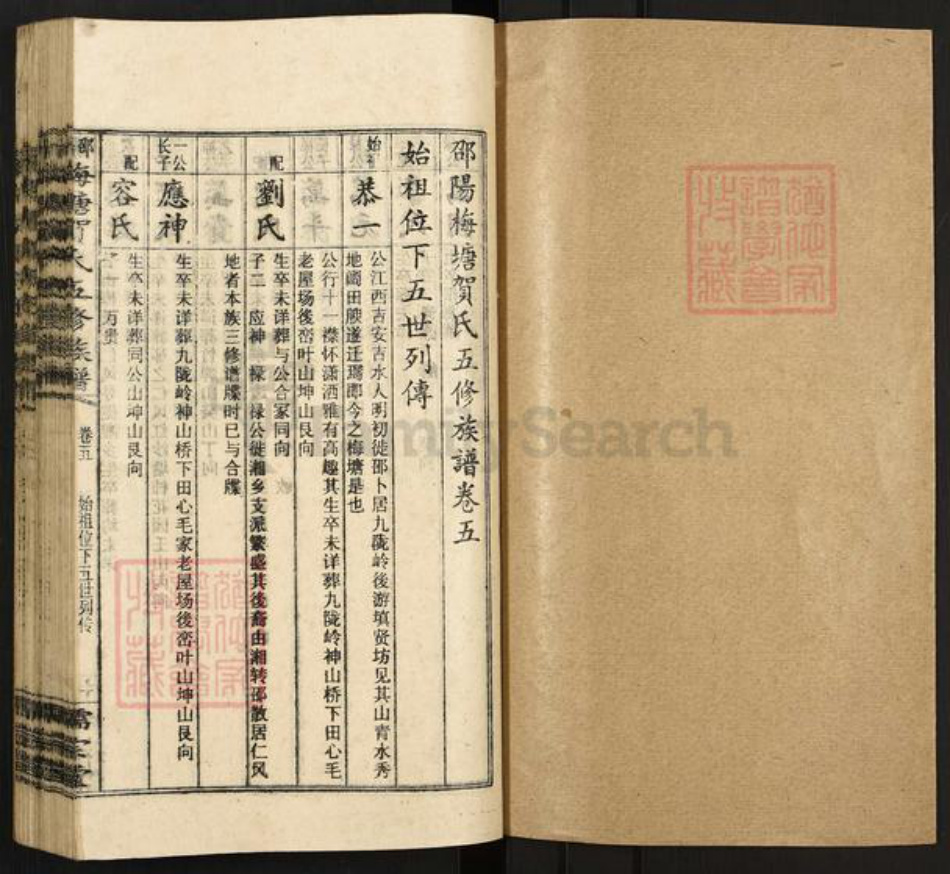 邵陽梅塘賀氏五修族譜卷五
始祖位下五世列傳
始祖
恭一
公江西吉安吉水人明初徒邵卜居九陇岭後游填贤坊见其山青水秀
地阔田腴遂迁焉即今之梅塘是也
公行十一襟怀潇洒雅有高趣其生卒未详葬九陇岭神山桥下田心毛
老屋场後峦叶山坤山艮向
配
劉氏
生卒未详葬与公合冢同向
子二 应神 禄 禄公徙湘乡支派繁盛其後裔由湘转邵散居仁风
地者本族三修谱牒时已与合牒
一公长子
應神
生卒未详葬九陇岭神山桥下田心毛家老屋场後峦叶山坤山艮向
配
容氏
生卒未详葬同公山坤山艮向
万贵
邵梅塘賀氏五修族譜
卷五
始祖位下五世列传
譜學會
特藏
FamilySearch